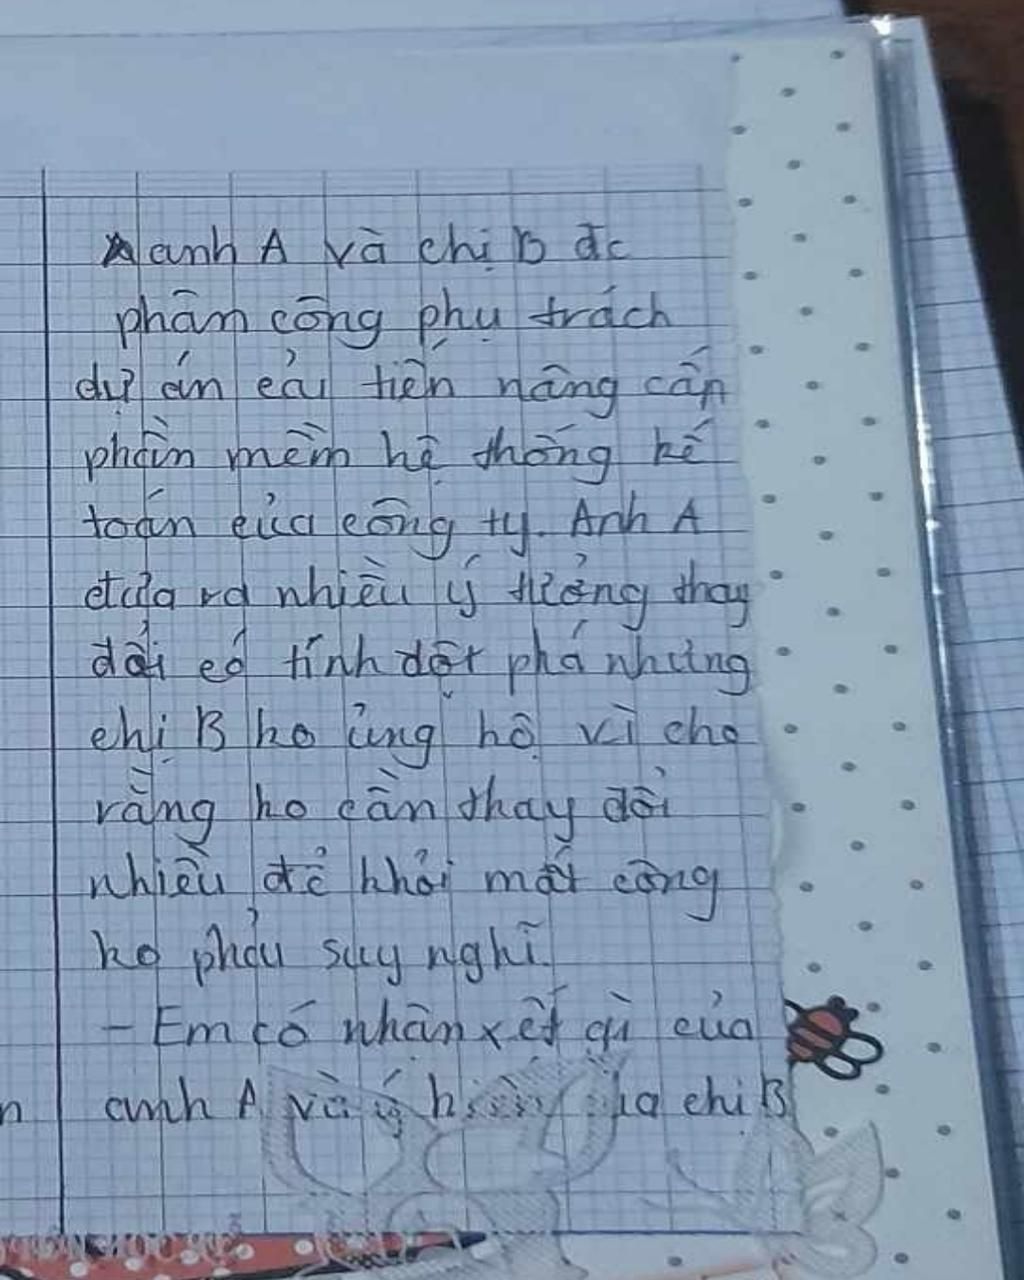 anh A và chị B đc
phân công phụ trách
dự án cải tiến nâng cấp
phần mềm hệ thống kế
toán của công ty. Anh A
đưa ra nhiều ý tưởng thay
đổi có tính đột phá nhưng
chị B ko ủng hộ vì cho
rằng ko cần thay đổi
nhiều để khỏi mất công
ko phải suy nghĩ.
- Em có nhận xét gì của
anh A và ý chị B